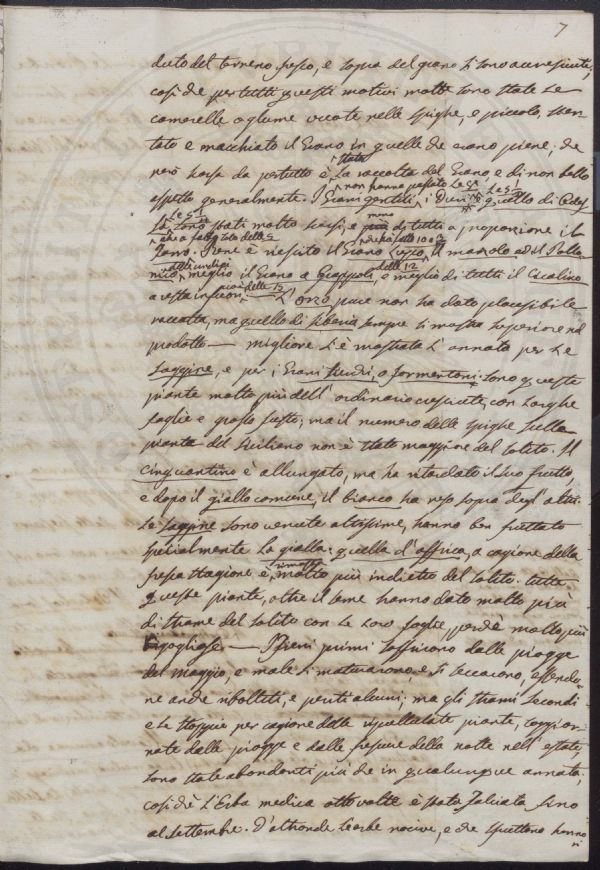 7
duto del terreno fresco, e sopra del grano si sono accresciute;
così che per tutti questi motivi molte sono state le
camerelle o glume vuote nelle spighe, e piccolo, sten-
tato e macchiato il Grano in quelle che erano piene; che
stata
però scarsa da per tutto è La raccolta del Grano, e di non bello
non hanno passato Le 5 Le 5 1/
aspetto generalmente. I Grani gentili i Duri e quello di
Le 5 1/
sono stati molto scarsi, e meno di tutti a proporzione il
che a fatto solo delle che ha fatto 10 e 1/2
Farro. Bene è riescito il Grano Lucco, il marzolo ed il Polla
delle undici delle 12
nico, meglio il Grano a Grappoli, e meglio di tutti il Cicalino
più delle 12
a resta L'orzo pure non ha dato plausibile
raccolta, ma quello di Siberia sempre si mostra superiore nel
prodotto — migliore s'è mostrata L'annata per Le
Saggine, e per i Grani turchi, o formentoni: sono queste
piante molto più dell'ordinario cresciute, con larghe
foglie e grosso fusto; ma il numero delle spighe sulla
pianta del Siciliano non è stato maggiore del solito. Il
cinquantino è allungato, ma ha ritardato il suo frutto,
e dopo il giallo comune, il bianco ha reso sopra degl'altri.
Le saggine sono venute altissime, hanno ben fruttato
specialmente La gialla: quella d'affrica, a cagione della
rimasta
fresca stagione è molto più indietro del solito. tutte
queste piante, oltre il seme hanno dato molto più
di strame del solito con Le Loro foglie, perchè molto più
rigogliose — I fieni primi soffrirono dalle piogge
del maggio, e male si maturarono e si seccarono, essendo-
ne anche ribolliti, e periti alcuni; ma gli strami secondi
e Le stoppie per cagione delle piante, soggior-
nate dalle piogge e dalle frescure della notte nell'estate,
sono state abondanti più che in qualunque annata,
così chè L'Erba medica otto volte è stata falciata sino
al settembre. D'altronde Le erbe nocive, e che spettano hanno